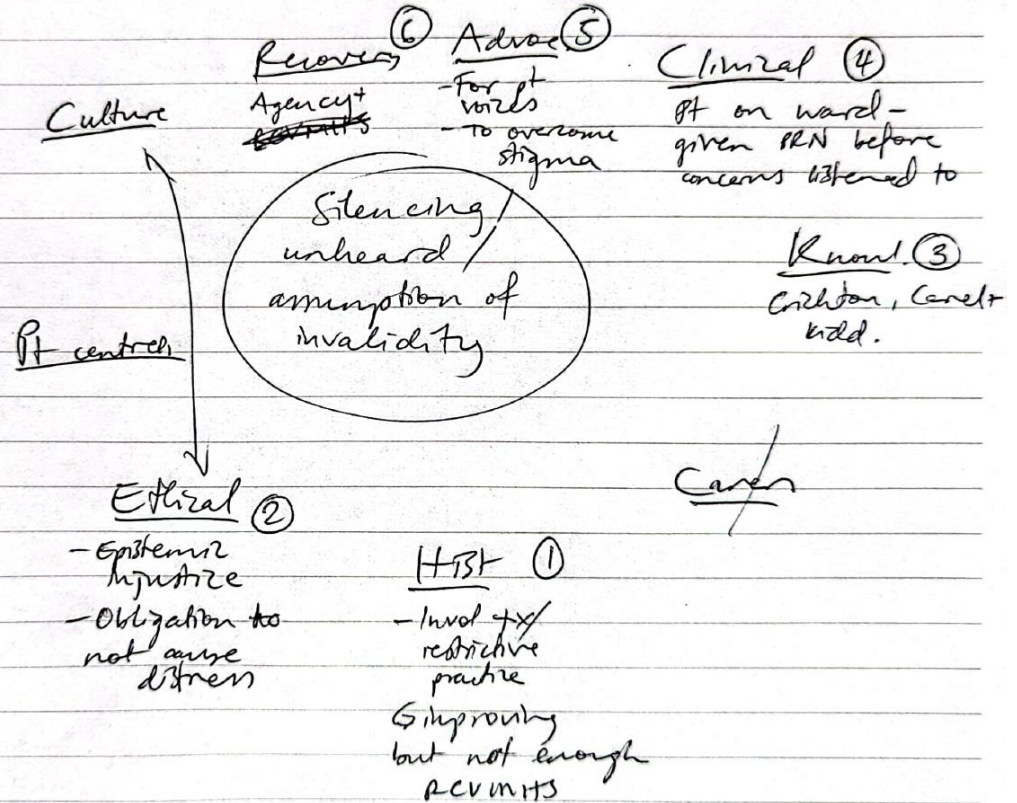 Recovery ⑥
Agency+
Advoc. ⑤
- For pt
voices
- To overcome
stigma
Clinical ④
Pt on ward -
given PRN before
concerns listened to
Culture
Silencing /
unheard /
assumption of
invalidity
Knowl. ③
Crichton, Carel +
Kidd.
Pt centred
Carers
Ethical ②
- Epistemic
Injustice
- Obligation to
not cause
distress
Hist ①
- Invol tx/
restrictive
practice
↳ improving
but not enough
RCVMHS